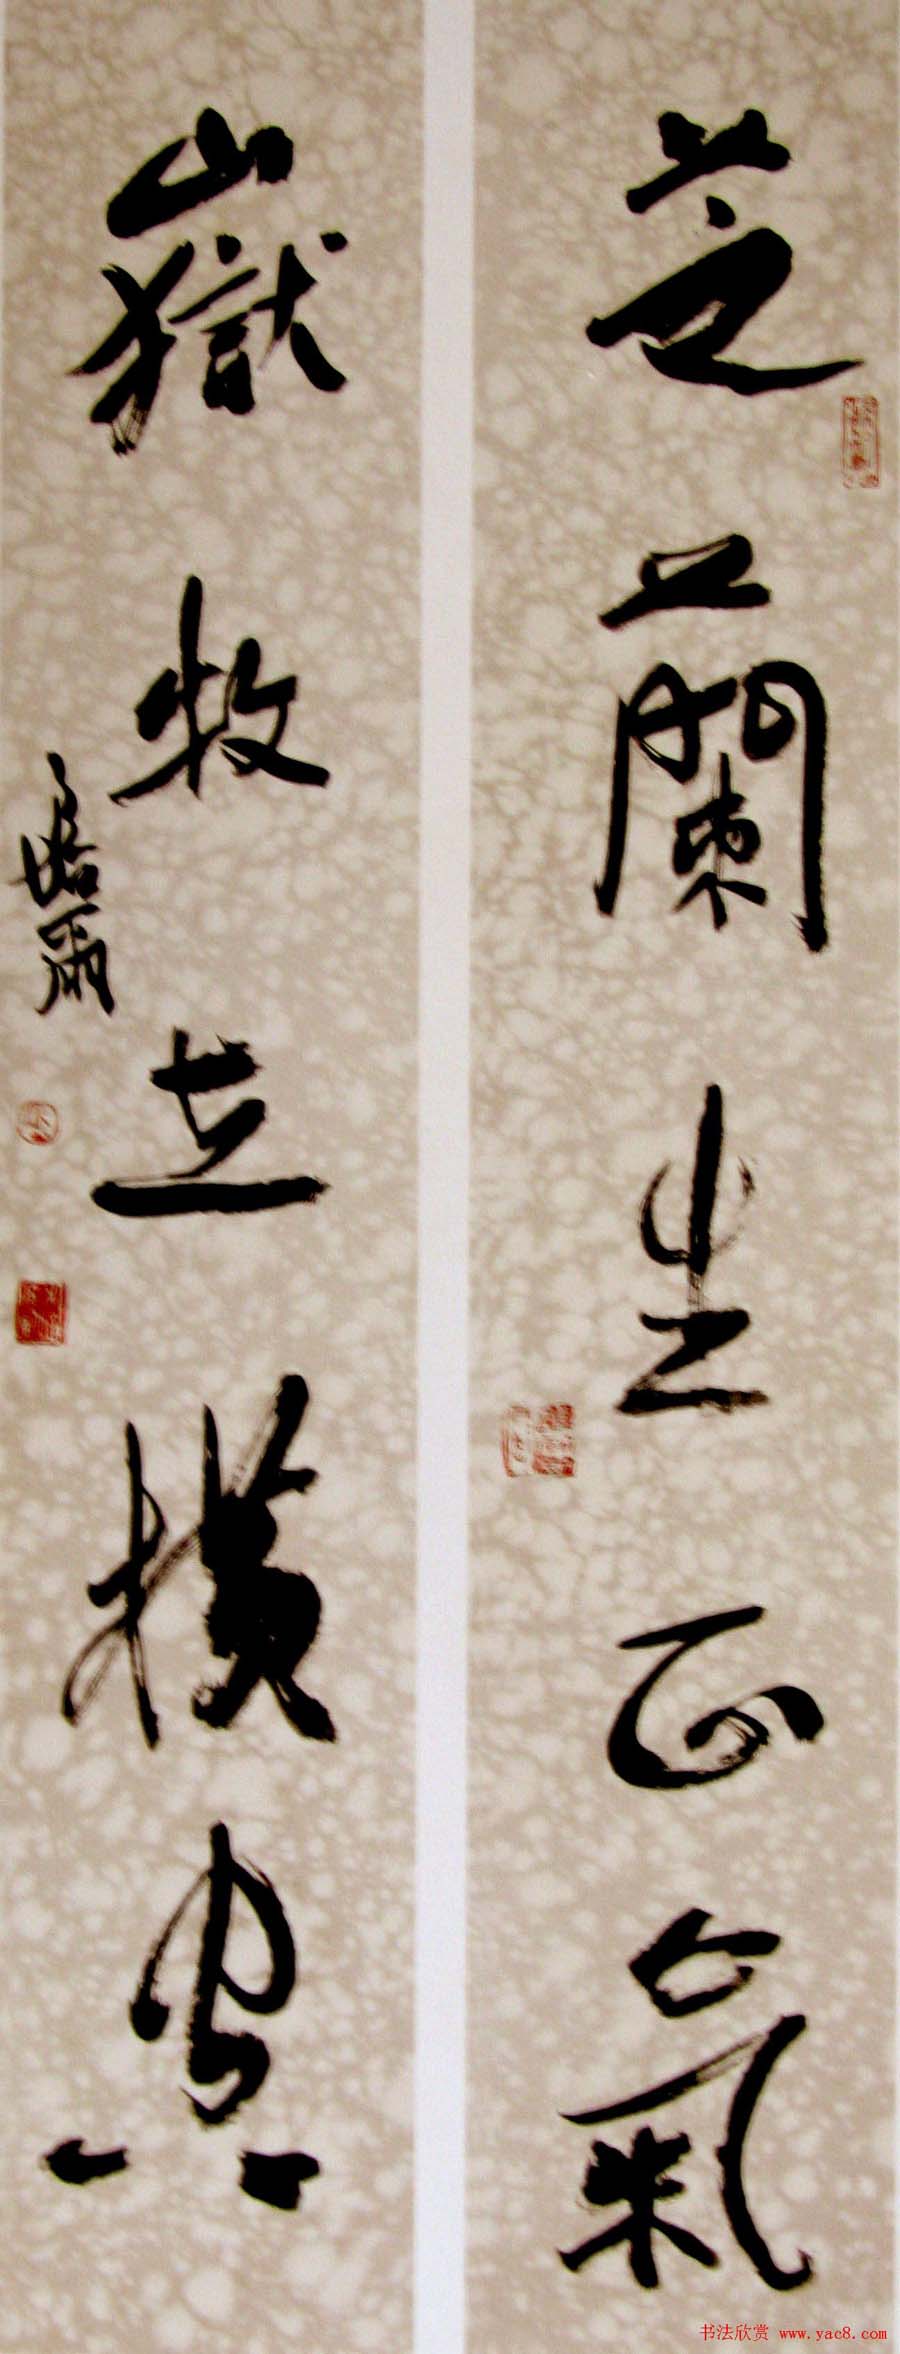 芝蘭坐正氣
嶽牧立横
书法欣赏 www.yac8.com